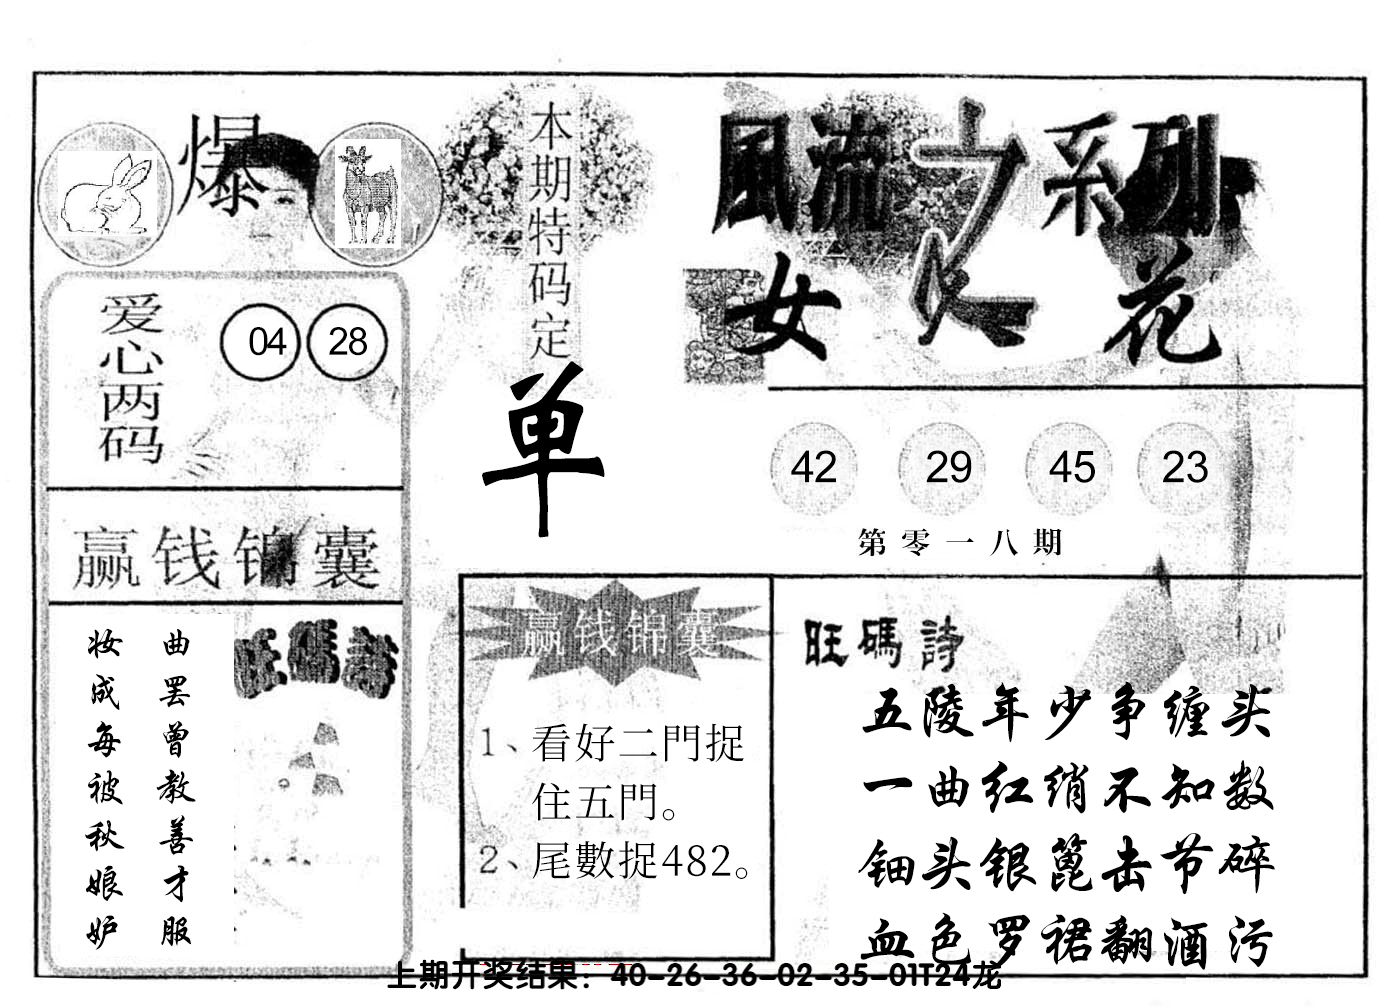 爆
本期特码定
单
風流之系列
女人花
爱心两码
04 28
42 29 45 23
第零一八期
赢钱锦囊
曲罢曾教善才服
妆成每被秋娘妒
旺碼詩
赢钱锦囊
1、看好二門捉
住五門。
2、尾數捉482。
旺碼詩
五陵年少争缠头
一曲红绡不知数
钿头银篦击节碎
血色罗裙翻酒污
上期开奖结果：40-26-36-02-35-01T24龙